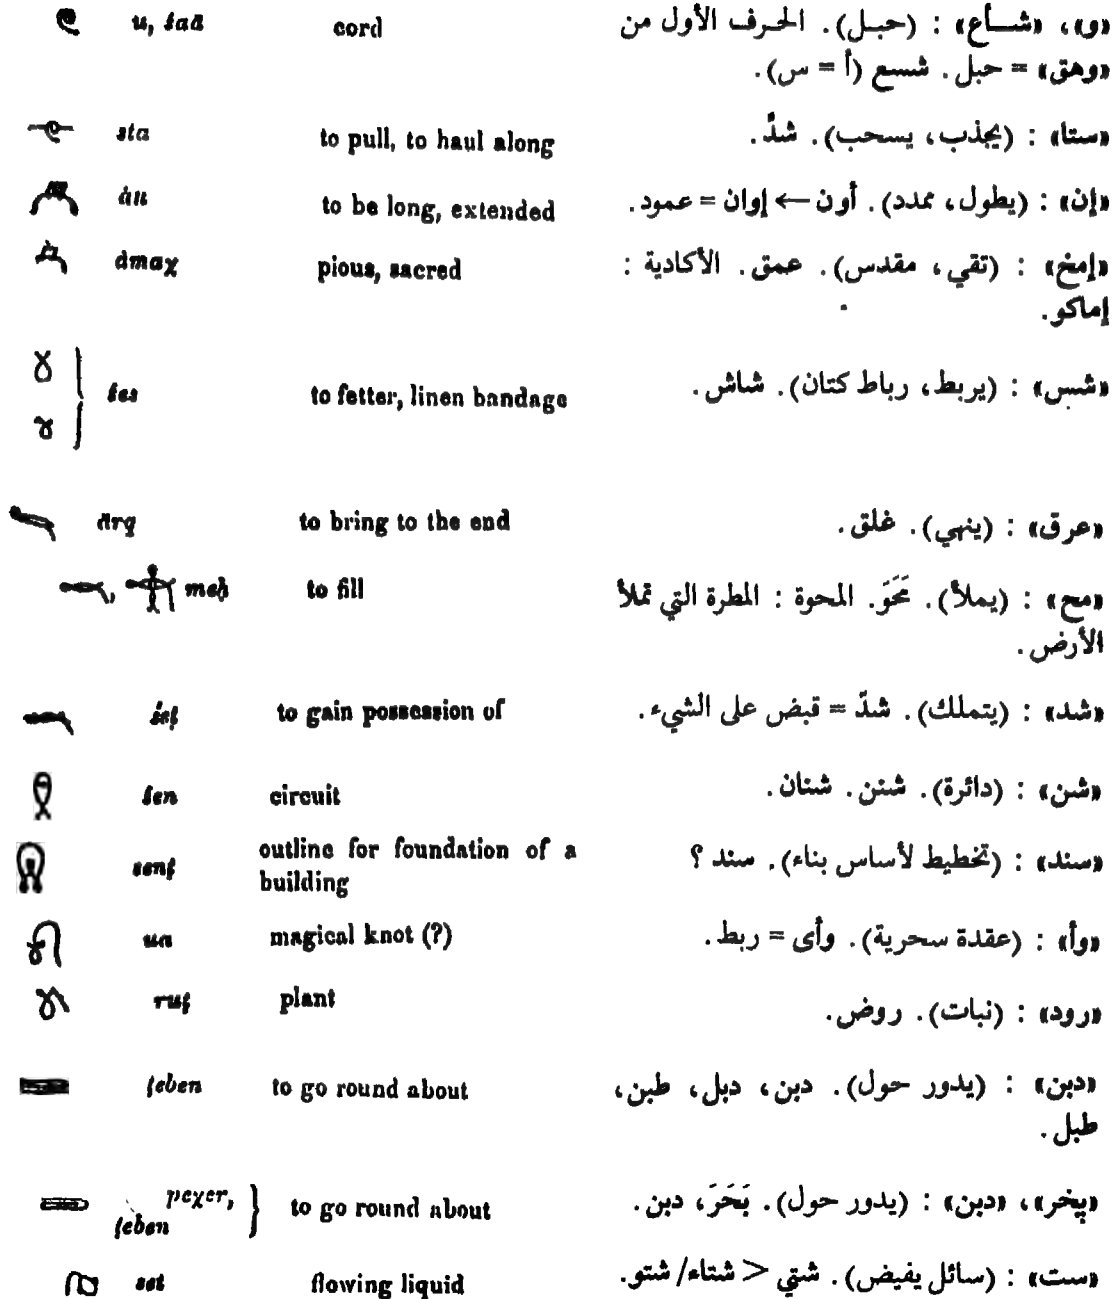 u, śaā cord «و»، «شـأع» : (حبـل). الحـرف الأول من
«وهق» = حبل. شسع (أ = س).
sta to pull, to haul along «ستا» : (يجذب، يسحب). شدّ.
ȧu to be long, extended «إن» : (يطول، ممدد). أون ← إوان = عمود.
ȧmaχ pious, sacred «إمخ» : (تقي، مقدس). عمق. الأكادية :
إماكو.
śes to fetter, linen bandage «شس» : (يربط، رباط كتان). شاش.
ārq to bring to the end «عرق» : (ينهي). غلق.
meḥ to fill «مح» : (يملأ). مَحَوَ. المحوة : المطرة التي تملأ
الأرض.
śeṭ to gain possession of «شد» : (يتملك). شدّ = قبض على الشيء.
śen circuit «شن» : (دائرة). شنن. شنان.
senṭ outline for foundation of a «سند» : (تخطيط لأساس بناء). سند ؟
building
ua magical knot (?) «وأ» : (عقدة سحرية). وأى = ربط.
ruṭ plant «رود» : (نبات). روض.
ṭeben to go round about «دبن» : (يدور حول). دبن، دبل، طبن،
طبل.
peχer, to go round about «پخر»، «دبن» : (يدور حول). بَحَرَ، دبن.
ṭeben
set flowing liquid «ست» : (سائل يفيض). شتي < شتاء/ شتو.